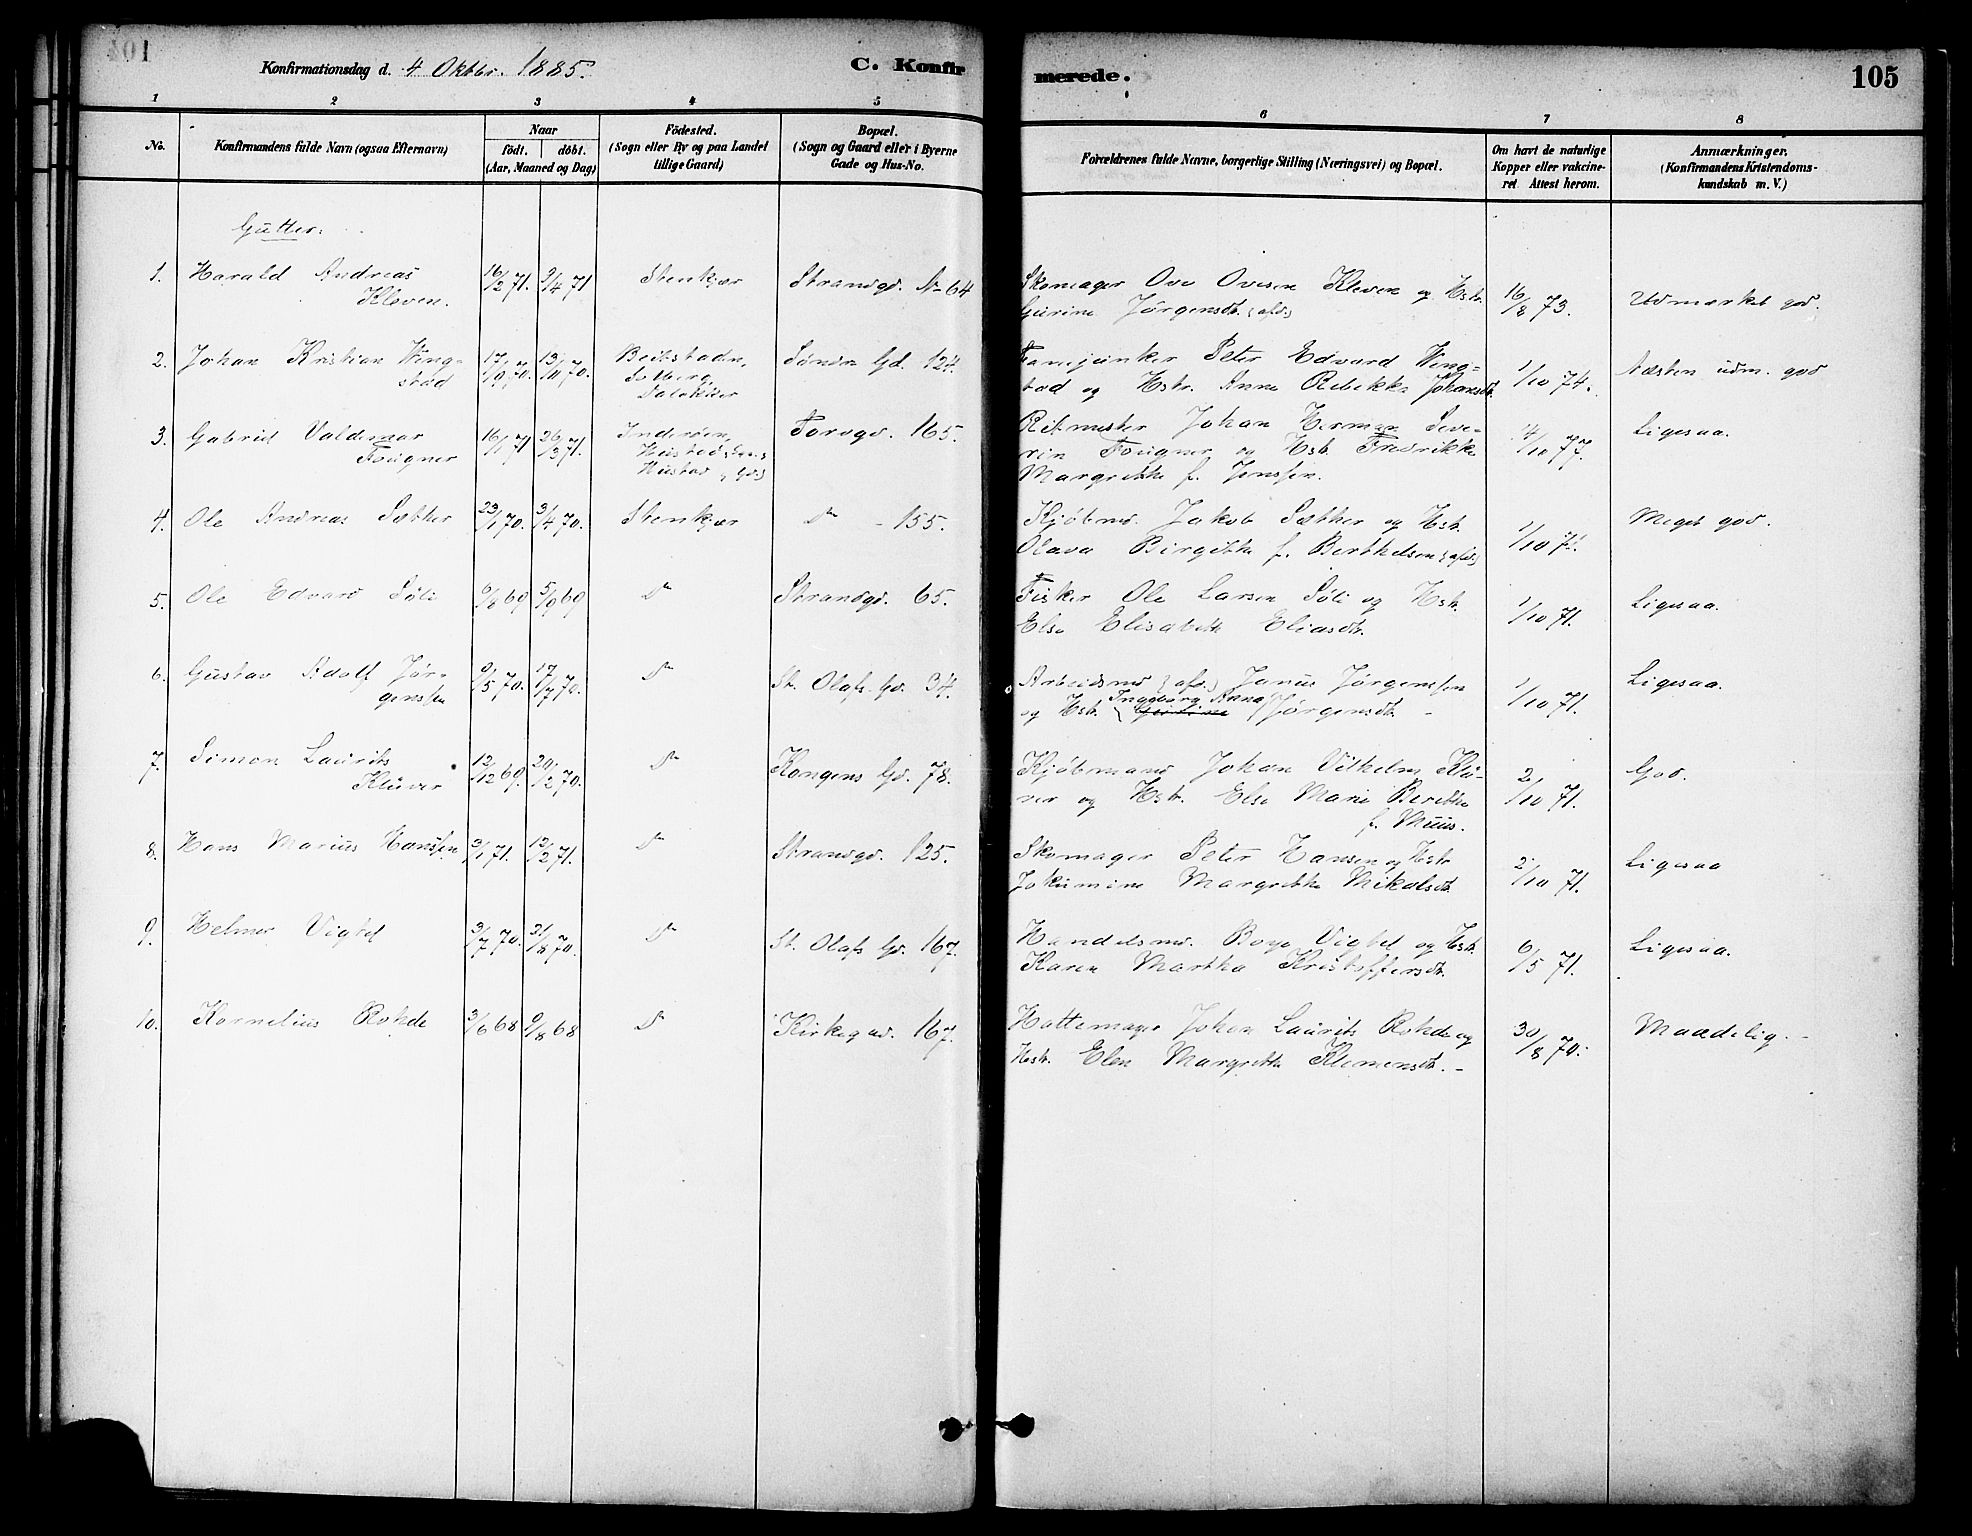 Konfirmationsdag d. 4 Oktbr. 1885.
C. Konfir
merede.
105
1 2 3 4 5 6 7 8
No.
Konfirmandens fulde Navn (ogsaa Efternavn)
Naar
födt. döbt.
(Aar, Maaned og Dag)
Födested.
(Sogn eller By og paa Landet
tillige Gaard)
Bopæl.
(Sogn og Gaard eller i Byerne
Gade og Hus-No.
Forældrenes fulde Navne, borgerlige Stilling (Næringsvei) og Bopæl.
Om havt de naturlige
Kopper eller vakcine-
ret. Attest herom.
Anmærkninger.
(Konfirmandens Kristendoms-
kundskab m. V.)
Gutter:
1. Harald Andreas
Kleven.
16/2 71. 9/4 71
Stenkjær
Strandgd. No 64
Skomager Ove Ovesen Kleven og Hstr.
Gurine Jørgensdtr. (afd.)
16/8 73.
Udmærket god.
2. Johan Kristian Weng-
stad
17/9 70. 13/11 70.
Beitstaden,
Solberg,
Søndre Gd. 124.
Fanejunker Peter Edvard Weng-
stad og Hstr. Anne Rebekka Johansdtr.
1/10 74.
Næsten udm. god
3. Gabriel Valdemar
Fougner
16/1 71 26/3 71.
Inderøen,
Hustad (Sogn)
Hustad (Gd.)
Torvgd. 165.
Ritmester Johan Herman Seve-
rin Fougner og Hstr. Fredrikke
Margrethe f. Jenssen.
4/10 77.
Ligesaa.
4. Ole Andreas Sæther
23/1 70. 3/4 70.
Stenkjær
do - 155.
Kjøbmd. Jakob Sæther og Hstr.
Olava Birgitte f. Berthelsen (afd.)
1/10 71.
Meget god.
5. Ole Edvard Søli
6/8 69 5/9 69
do
Strandgd. 65.
Fisker Ole Larsen Søli og Hstr.
Else Elisabeth Eliasdtr.
1/10 71.
Ligesaa.
6. Gustav Adolf Jør-
genssen
9/5 70. 17/7 70.
do
St. Olafs Gd. 34.
Arbeidsmd (afd.) Janus Jørgenssen
og Hstr. Ingeborg Anna Jørgensdtr. -
1/10 71.
Ligesaa.
7. Simon Laurits
Klüver
12/12 69. 20/2 70.
do
Kongens Gd. 78.
Kjøbmand Johan Vilhelm Klü-
ver og Hstr. Else Marie Berethe
f. Müus.
2/10 71.
God.
8. Hans Marius Hanssen
3/1 71. 12/2 71.
do
Strandgd. 125.
Skomager Peter Hansen og Hstr
Jokumine Margrethe Mikalsdtr.
2/10 71.
Ligesaa
9. Helmer Vigtel
3/7 70. 21/8 70.
do
St. Olafs Gd. 167.
Handelsmd. Boye Vigtel og Hstr.
Karen Martha Kristoffersdtr.
6/5 71.
Ligesaa.
10. Kornelius Rohde
3/6 68 9/8 68
do
Kirkegad. 167.
Hattemager Johan Laurits Rohde og
Hstr. Elen Margrethe Klemensdtr. -
30/8 70.
Maadelig. -